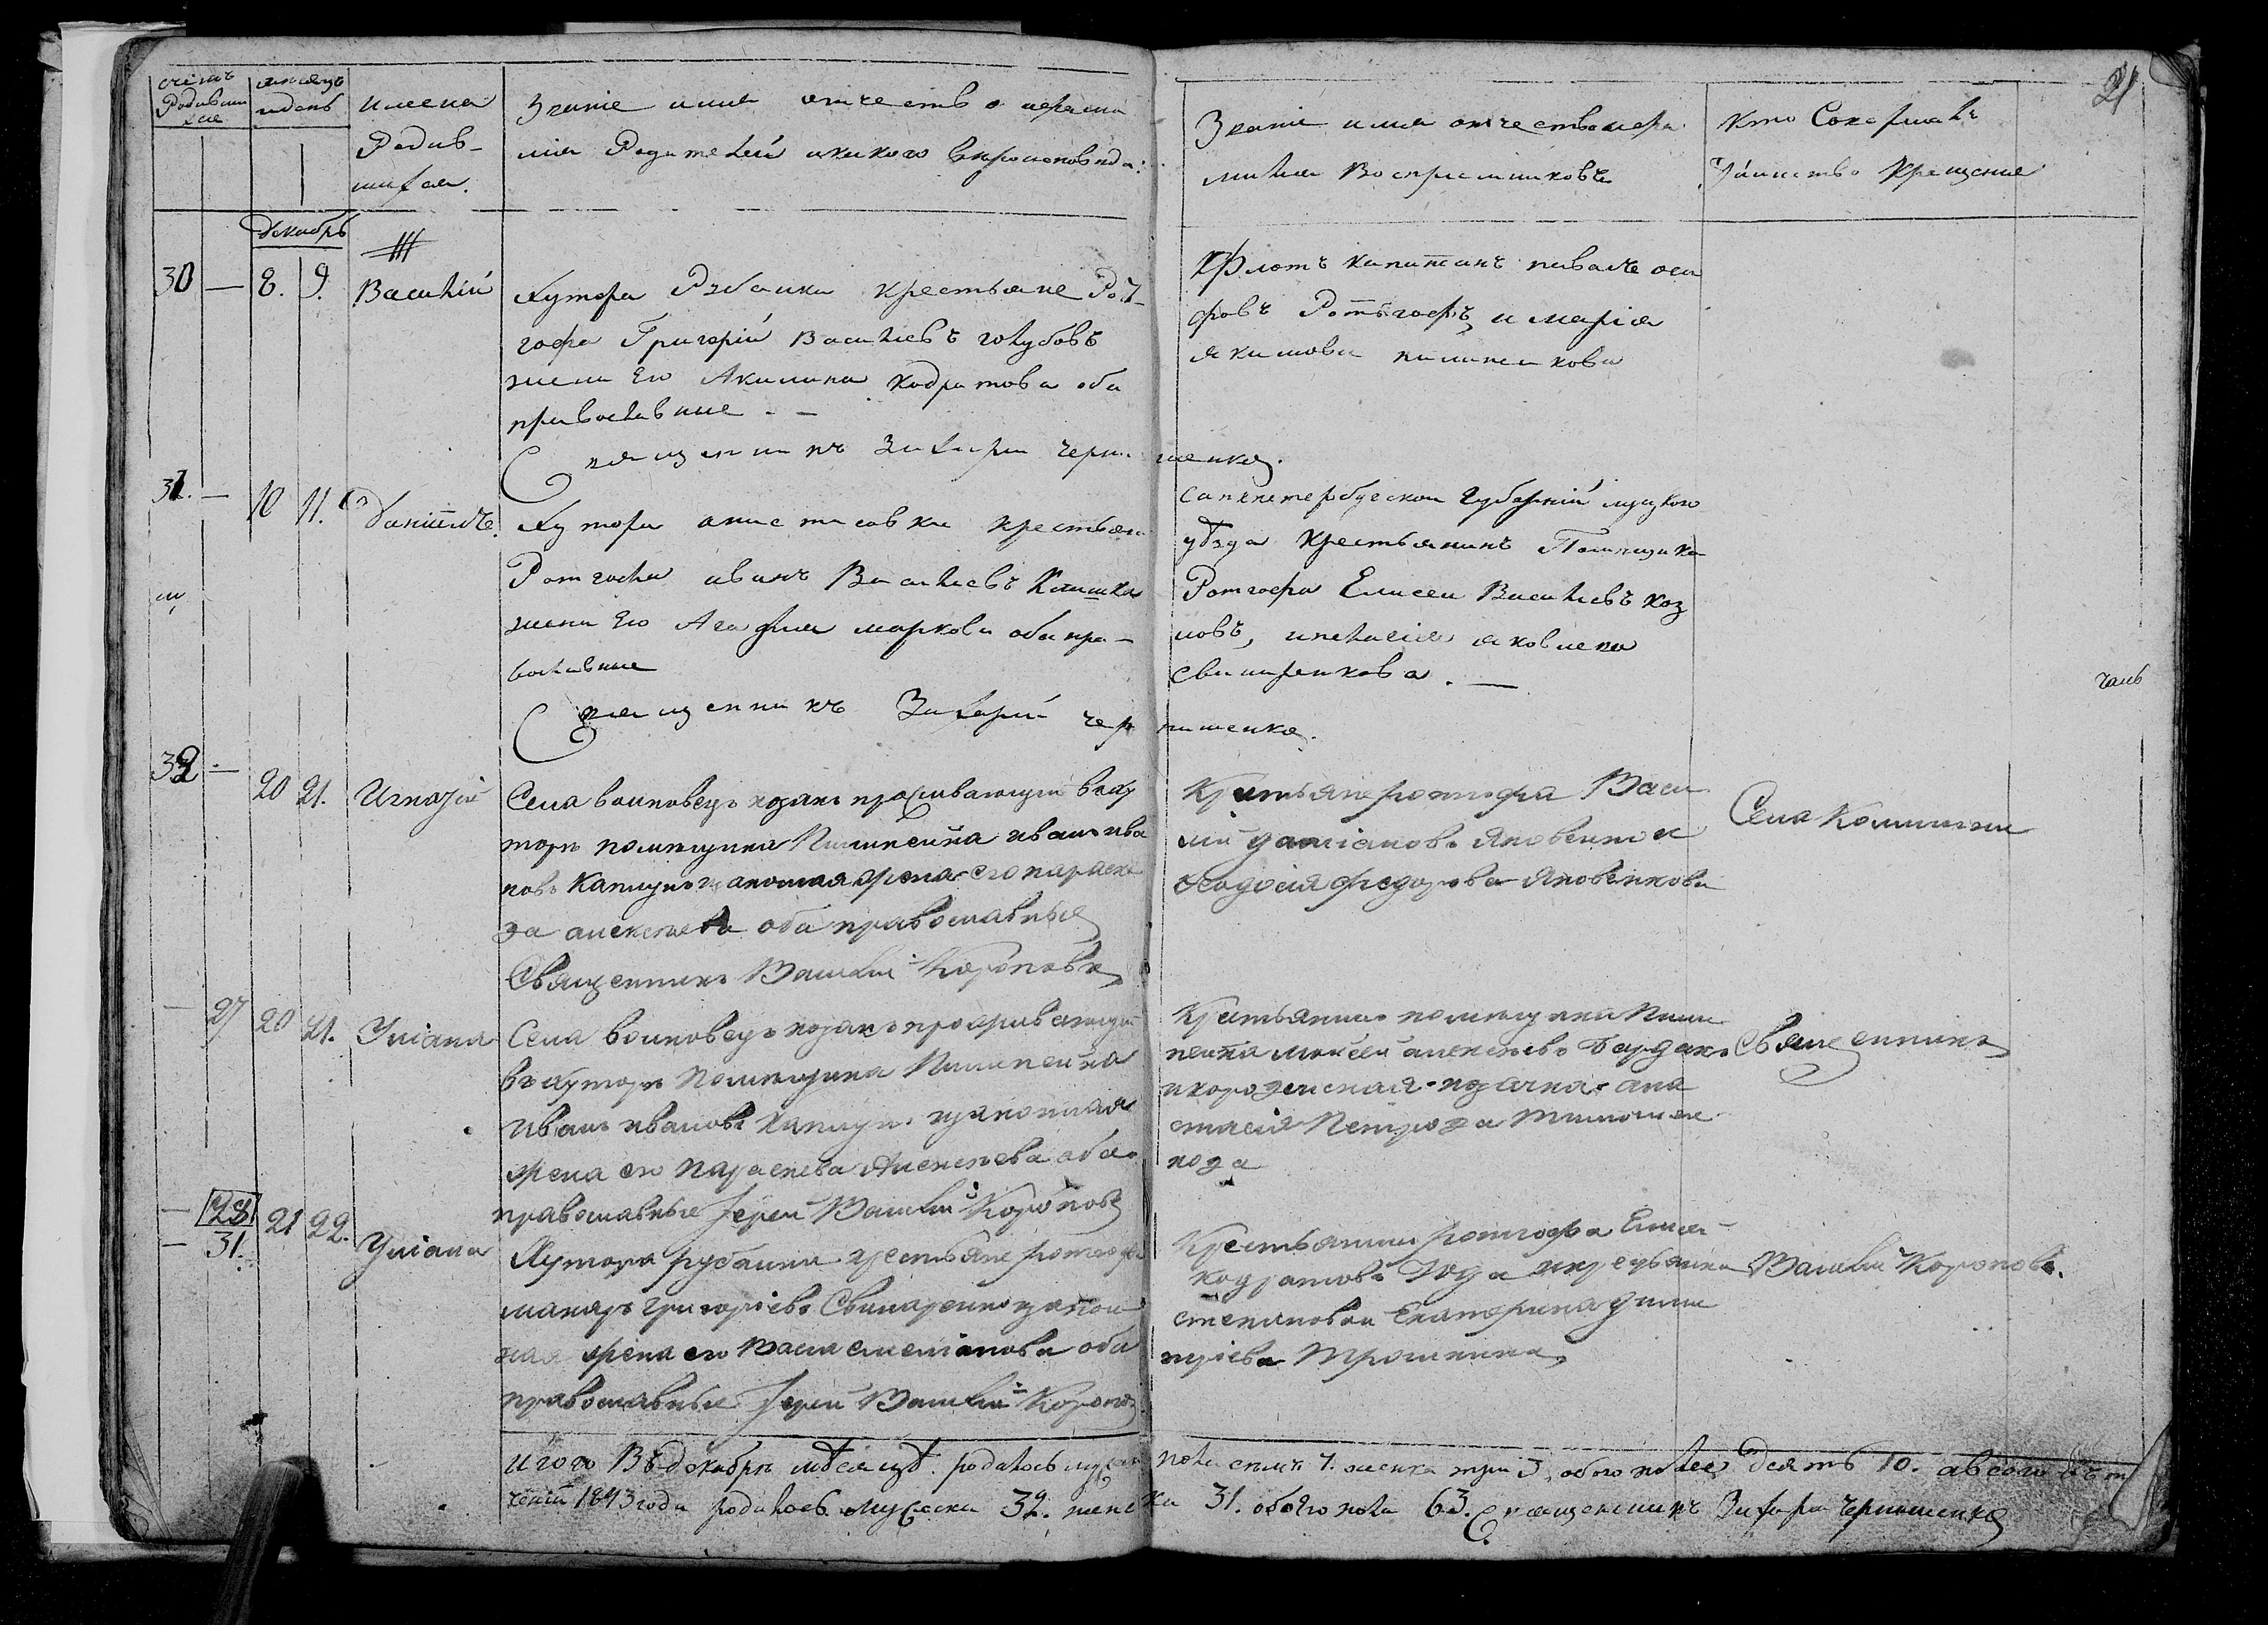 счетъ
Родивши
хся
месяцъ
и день
имена
Родив-
шихся.
Званіе имя отчество и фами
лія Родителей и какого вероисповеда:
Званіе имя отчество и фа
милія Воспріемниковъ
Кто Совершалъ
Таинство Крещенія
21
Декабрь
30 — 8. 9. Василій
Хутора Рубанки крестьяне Рот
гофа Григорій Васильевъ голубовъ
жена Его Акилина Кодратова оба
православные - -
Священникъ Захарій Чернишенко.
Флотъ капитанъ павелъ оси
фовъ Ротгофъ и марія
якимова
31. — 10 11. Даніилъ.
Хутора крестьяне
Ротгофа иванъ Васильевъ
жена Его Агафія маркова оба пра-
вославные
Священникъ Захарій Чернишенко.
Санкпетербугской губерній лужкого
уѣзда Крестьянинъ Помещика
Ротгофа Елисей Васильевъ коз
ловъ, и пелагія яковлева
свинаренкова. —
чань
32 — 20 21. Игнатій
Села воиновецъ козакъ проживающій в ху
торе помещика Пилипейка иванъ ива
новъ Каплунъ законная жена его параске
ва алексеева оба православные
Священникъ Василій Короповъ
Крестьяне ротгофа Васи
лій даміановъ Яковенко и
феодосія федорова Яковенкова
Села
— 27 20 21. Уліана
Села воиновецъ козакъ проживающій
въ хуторе Помещика Пилипейка
Иванъ ивановъ Каплун. законная
жена его Параскева Алексеева оба
православные Іерей Василій Короповъ
Крестьянинъ помещика Пили
пейка Моисей алексеевъ Бардакъ
и козачка ана
стасія Петрова Тимошен
кова
Священникъ
— 28
— 31. 21 22. Уліана
Хутора рубанки крестьяне ротгофа
макаръ григоріевъ Свинаренко закон
ная жена его Васса оба
православные Іерей Василій Коропов
Крестьянинъ ротгофа Елисей
кодратовъ и
степановки Екатерина дими
тріева Трошкина
Василій Короповъ.
Итого Въ декабре мѣсяцѣ родилось мужеска пола семь 7. женска три 3, обоего пола Десять 10. а всего въ
1843 года родилось Мужеска 32. женска 31. обоего пола 63. Священникъ Захарій Чернишенко